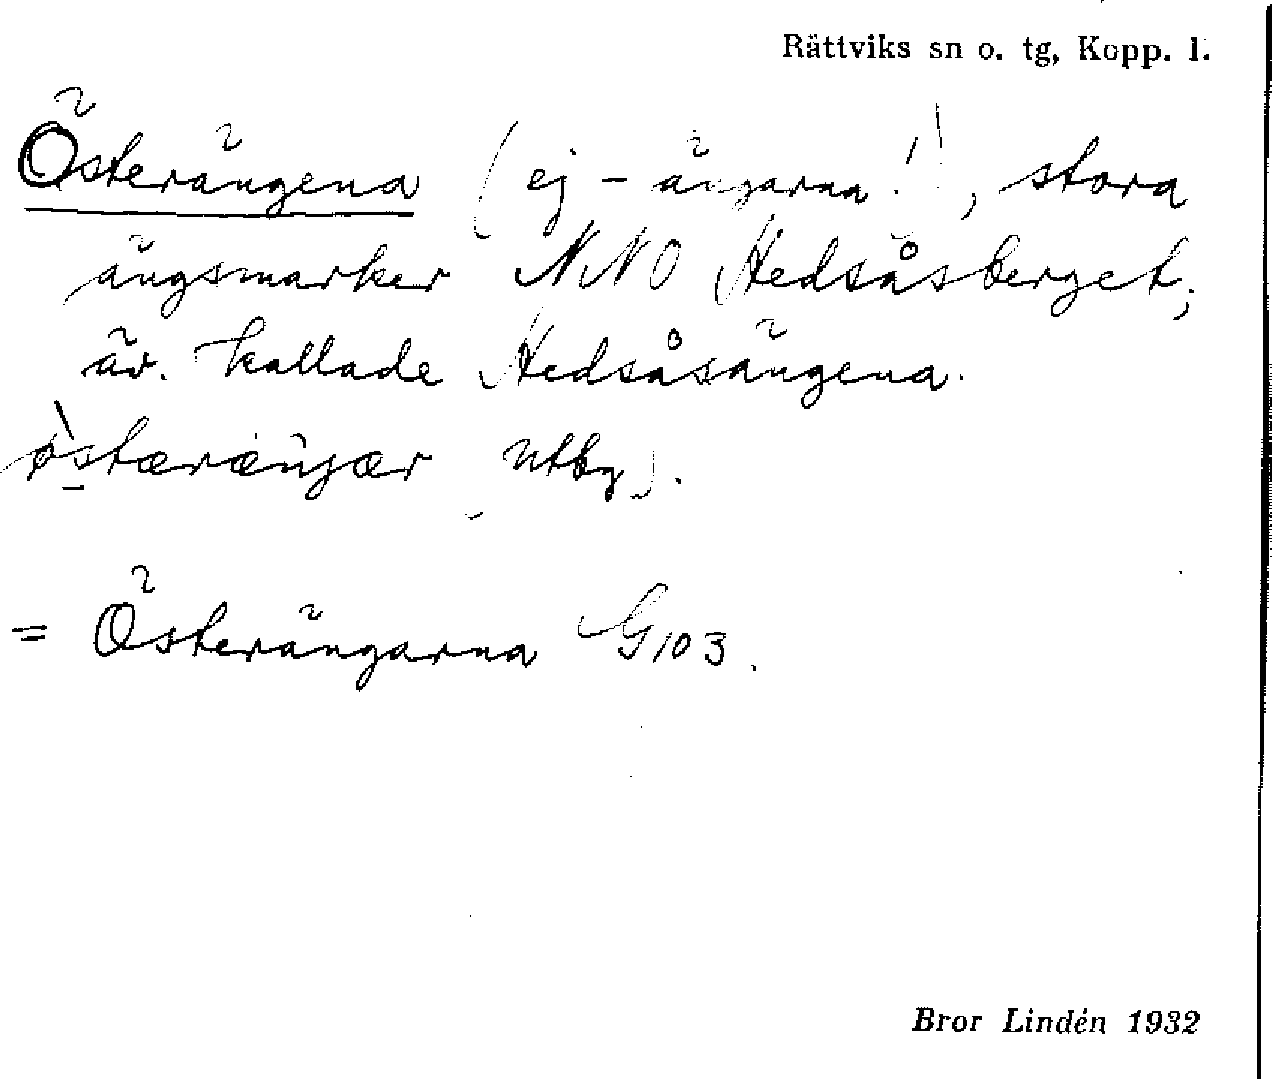 Rättviks sn o. tg, Kopp. l.
Österängena (ej - ängarna!), stora
ängsmarker NNO Hedsåsberget;
äv. kallade Hedsåsängena.
(utby).
= Österängarna G103.
Bror Lindén 1932